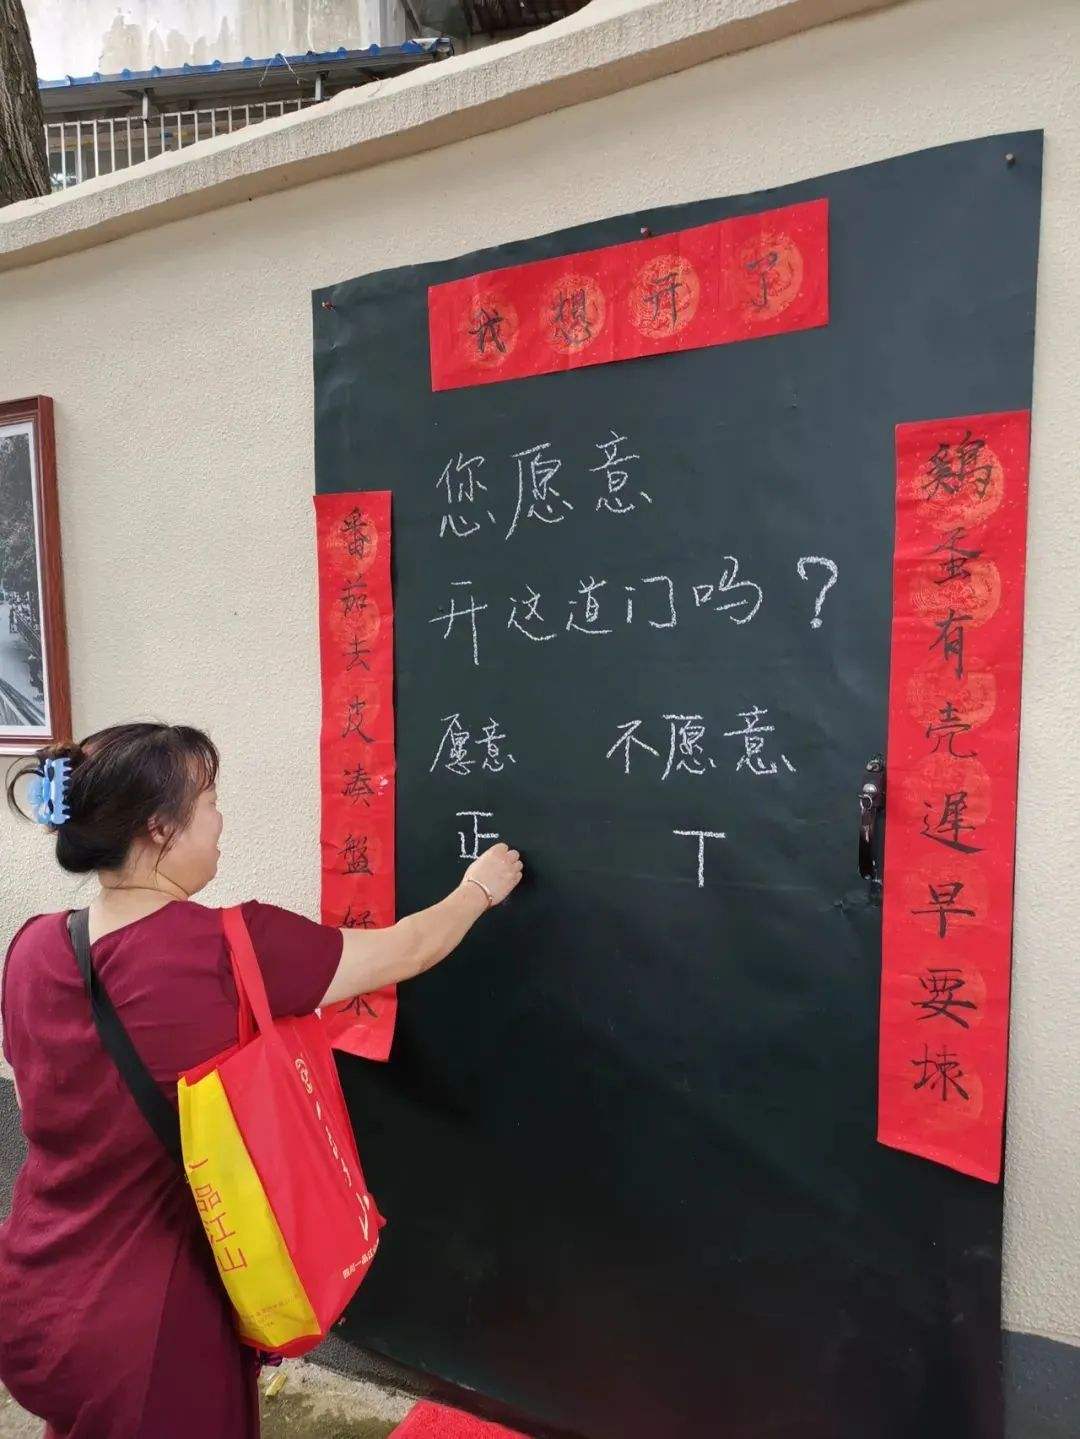 我想开了
鷄蛋有壳遲早要埭
番茄去皮凑盤
您愿意
开这道门吗?
愿意 不愿意
正 丅
一品江山
四川一品江